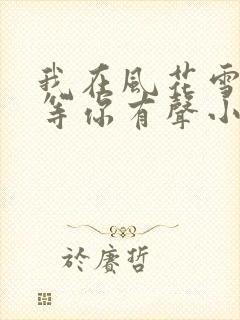 我在風花雪
等你有聲小
於賡哲